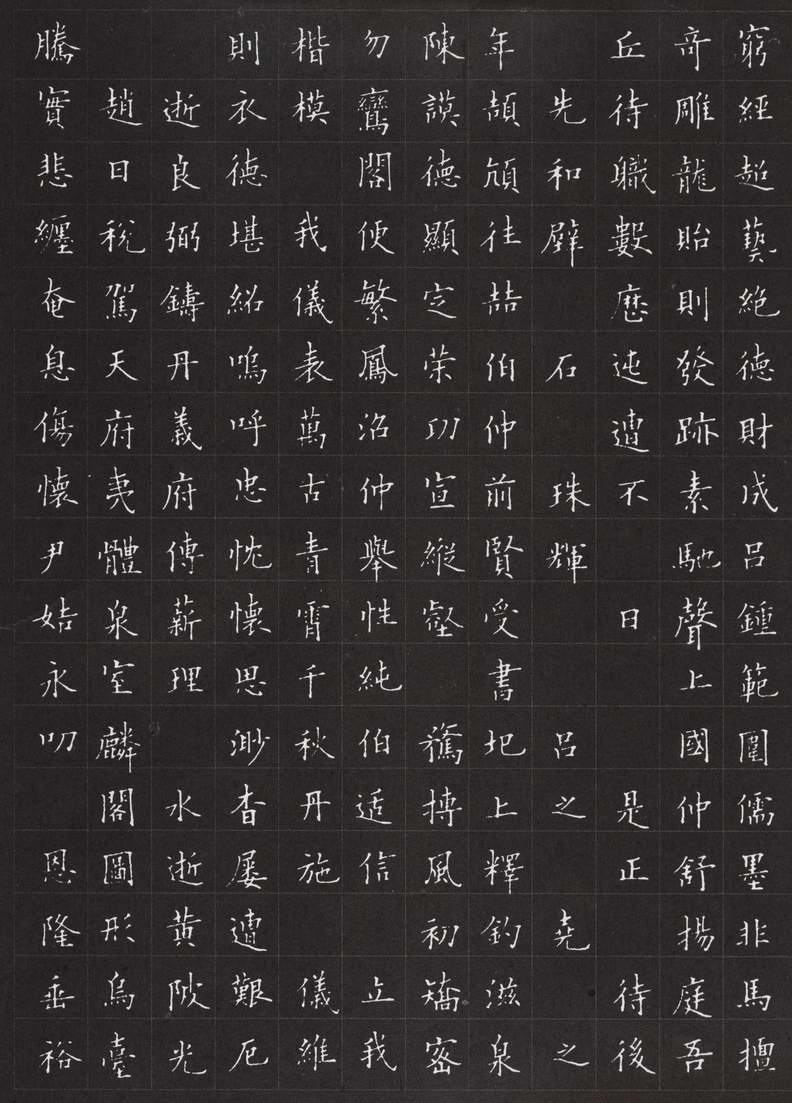 窮經超藝絕德財成呂鍾範圍儒墨非馬擅
奇雕龍貽則發跡素馳聲上國仲舒揚庭吾
丘待職數歷迍遭不 日 是正 待後
先和璧 石 珠輝 呂之 堯 之
年頡頏往喆伯仲前賢受書圯上釋釣滋泉
陳謨德顯定榮功宣縱壑 摶風初矯密
勿鸞閣便繁鳳沼仲舉性純伯适信 立我
楷模 我儀表萬古青霄千秋丹施 儀維
則衣德堪紹嗚呼忠忱懷思渺杳屢遭艱厄
逝良弼鑄丹義府傳薪理 水逝黃陂光
趙日稅駕天府夷體泉室麟閣圖形烏臺
騰實悲纏奄息傷懷尹姞永叨 恩隆垂裕